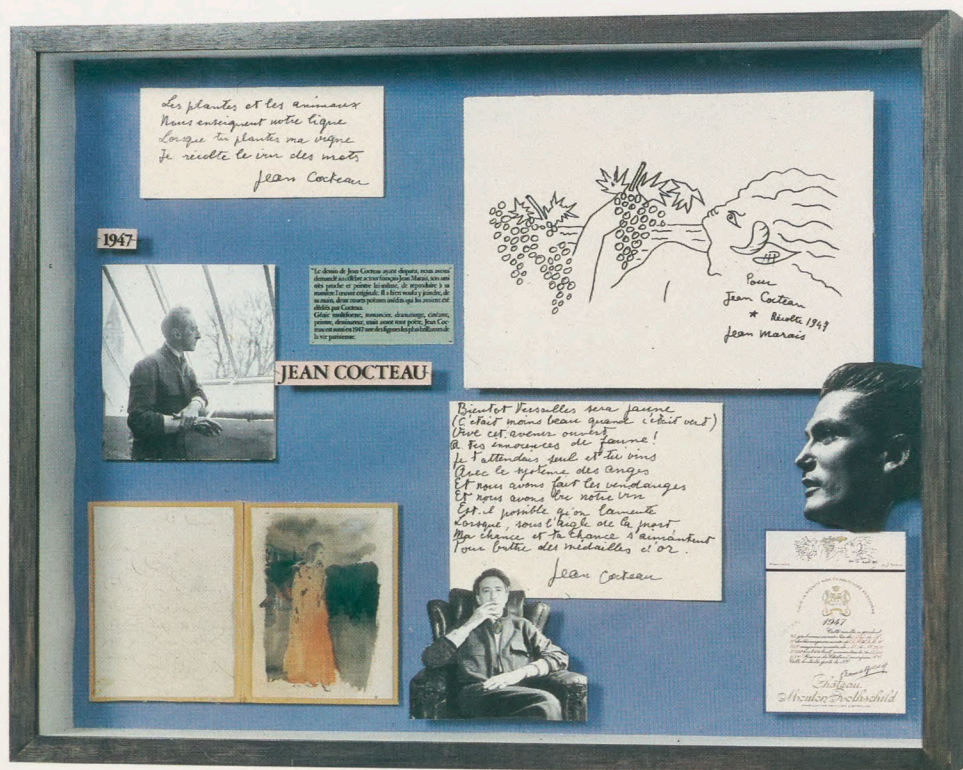 Les plantes et les animaux
Nous enseignent notre ligne
Lorsque tu plantes ma vigne
Je récolte le vin des mots
Jean Cocteau
1947
"Le dessin de Jean Cocteau ayant disparu, nous avons
demandé au célèbre acteur français Jean Marais, son ami
très proche et peintre lui-même, de reproduire à sa
manière l'œuvre originale. Il a bien voulu y joindre, de
sa main, deux courts poèmes inédits qui lui avaient été
dédiés par Cocteau.
Génie multiforme, romancier, dramaturge, cinéaste,
peintre, dessinateur, mais avant tout poète, Jean Coc-
teau est aussi en 1947 une des figures les plus brillantes de
la vie parisienne.
JEAN COCTEAU
Pour
Jean Cocteau
* Récolte 1947
Jean Marais
Bientot Versailles sera jaune
(C'était moins beau quand c'était vert)
Vive cet avenir ouvert
A tes innocences de faune!
Je t'attendais seul et tu vins
Avec le système des anges
Et nous avons fait les vendanges
Et nous avons bu notre vin
Est-il possible qu'on lamente
Lorsque, sous l'aigle de la mort
Ma chance et ta chance s'aimantent
Pour battre des médailles d'or.
Jean Cocteau
1947
Cette récolte a produit
Château
Mouton Rothschild